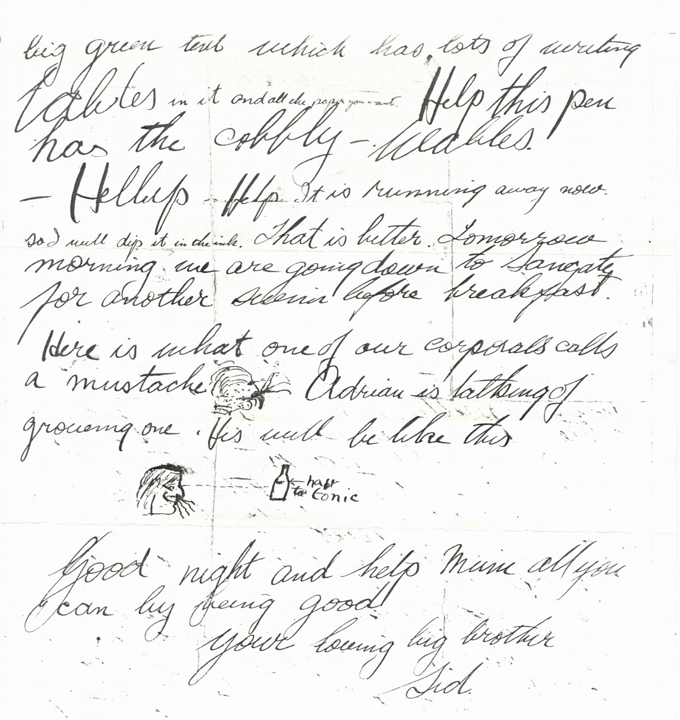 big green tent which has lots of writing
tables in it and all the paper you want. Help this pen
has the cobbly - wables.
- Hellup - Help. It is running away now.
so I will dip it in the ink. That is better. Tomorrow
morning we are going down to Sangate
for another swim before breakfast.
Here is what one of our corporals calls
a mustache Adrian is talking of
growing one. His will be like this
hair
tonic
Good night and help Mum all you
can by being good
your loving big brother
Sid.